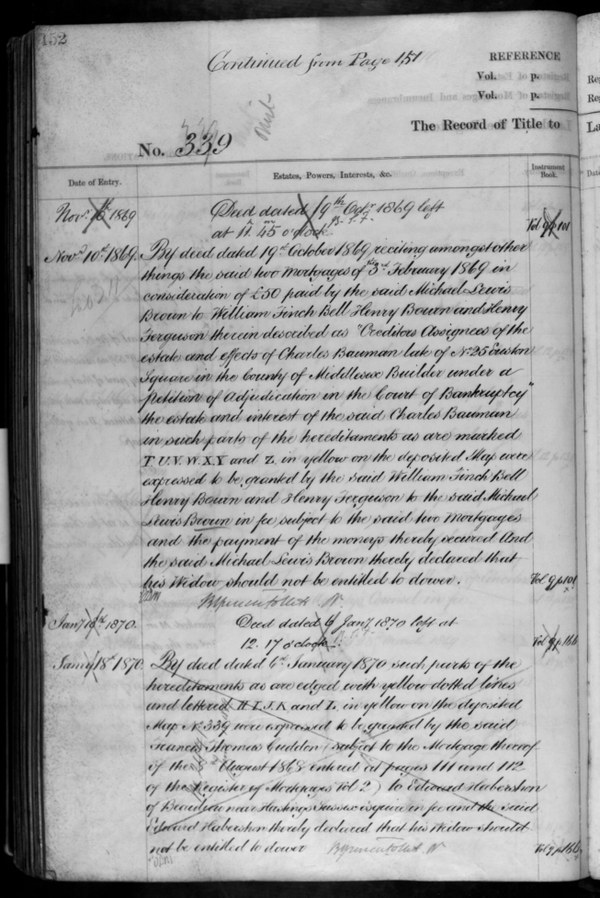 152
Continued from Page 151
REFERENCE
Vol. p.
Vol. p.
The Record of Title to
No. 339
Date of Entry.
Estates, Powers, Interests, &c.
Instrument Book.
Novr 1869
Deed dated 19th Octr 1869 left
at 11. 45 o'clock
Vol 9 p 101
Novr 10th 1869.
By deed dated 19th October 1869 reciting amongst other
things the said two Mortgages of 3rd February 1869 in
consideration of £50 paid by the said Michael Lewis
Brown to William Finch Bell Henry Bown and Henry
Ferguson therein described as "Creditors Assignees of the
estate and effects of Charles Bauman late of No 25 Euston
Square in the County of Middlesex Builder under a
petition of Adjudication in the Court of Bankruptcy"
the estate and interest of the said Charles Bauman
in such parts of the hereditaments as are marked
T U. V. W. X. Y and Z. in yellow on the deposited Map were
expressed to be granted by the said William Finch Bell
Henry Bown and Henry Ferguson to the said Michael
Lewis Brown in fee subject to the said two Mortgages
and the payment of the moneys thereby secured And
the said Michael Lewis Brown thereby declared that
his Widow should not be entitled to dower.
Vol 9 p 101
Jany 1870.
Deed dated 6 Jany 1870 left at
12. 17 o'clock
Vol 9 p 166
Jany 18th 1870
By deed dated 6th January 1870 such parts of the
hereditaments as are edged with yellow dotted lines
and lettered H. I. J. K and L. in yellow on the deposited
Map No 339 were expressed to be granted by the said
Francis Thomas Cuddon (subject to the Mortgage thereof
of the August 1868 entered at pages 111 and 112
of the Register of Mortgages Vol 2) to Edward Habershon
of near Hastings Sussex esquire in fee and the said
Edward Habershon thereby declared that his Widow should
not be entitled to dower
Vol 9 p 166